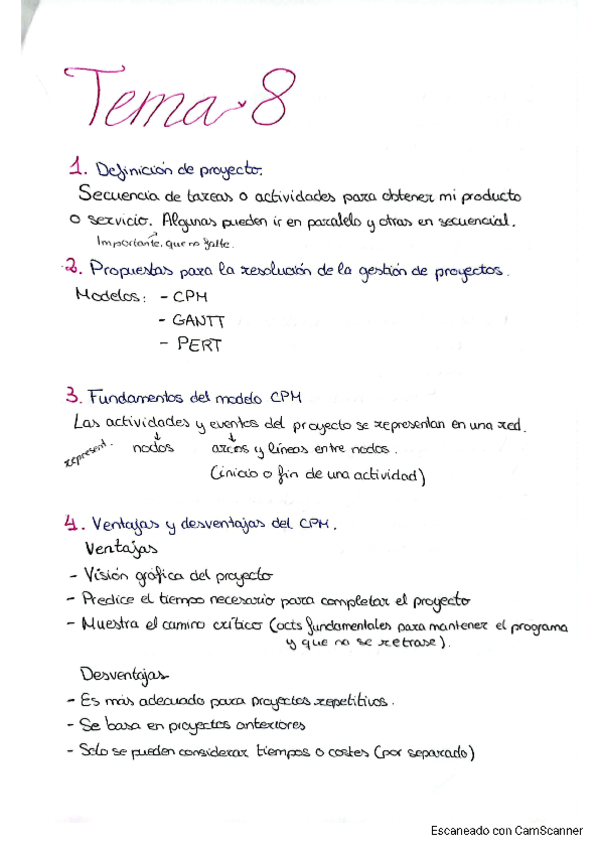 Tema 8
1. Definición de proyecto.
Secuencia de tareas o actividades para obtener mi producto
o servicio. Algunas pueden ir en paralelo y otras en secuencial.
Importante, que no falte.
2. Propuestas para la resolución de la gestión de proyectos.
Modelos: - CPM
- GANTT
- PERT
3. Fundamentos del modelo CPM
Las actividades y eventos del proyecto se representan en una red.
represent. nodos arcos y líneas entre nodos.
(inicio o fin de una actividad)
4. Ventajas y desventajas del CPM.
Ventajas
- Visión gráfica del proyecto
- Predice el tiempo necesario para completar el proyecto
- Muestra el camino crítico (acts fundamentales para mantener el programa
y que no se retrase).
Desventajas
- Es más adecuado para proyectos repetitivos.
- Se basa en proyectos anteriores
- Solo se pueden considerar tiempos o costes (por separado)
Escaneado con CamScanner